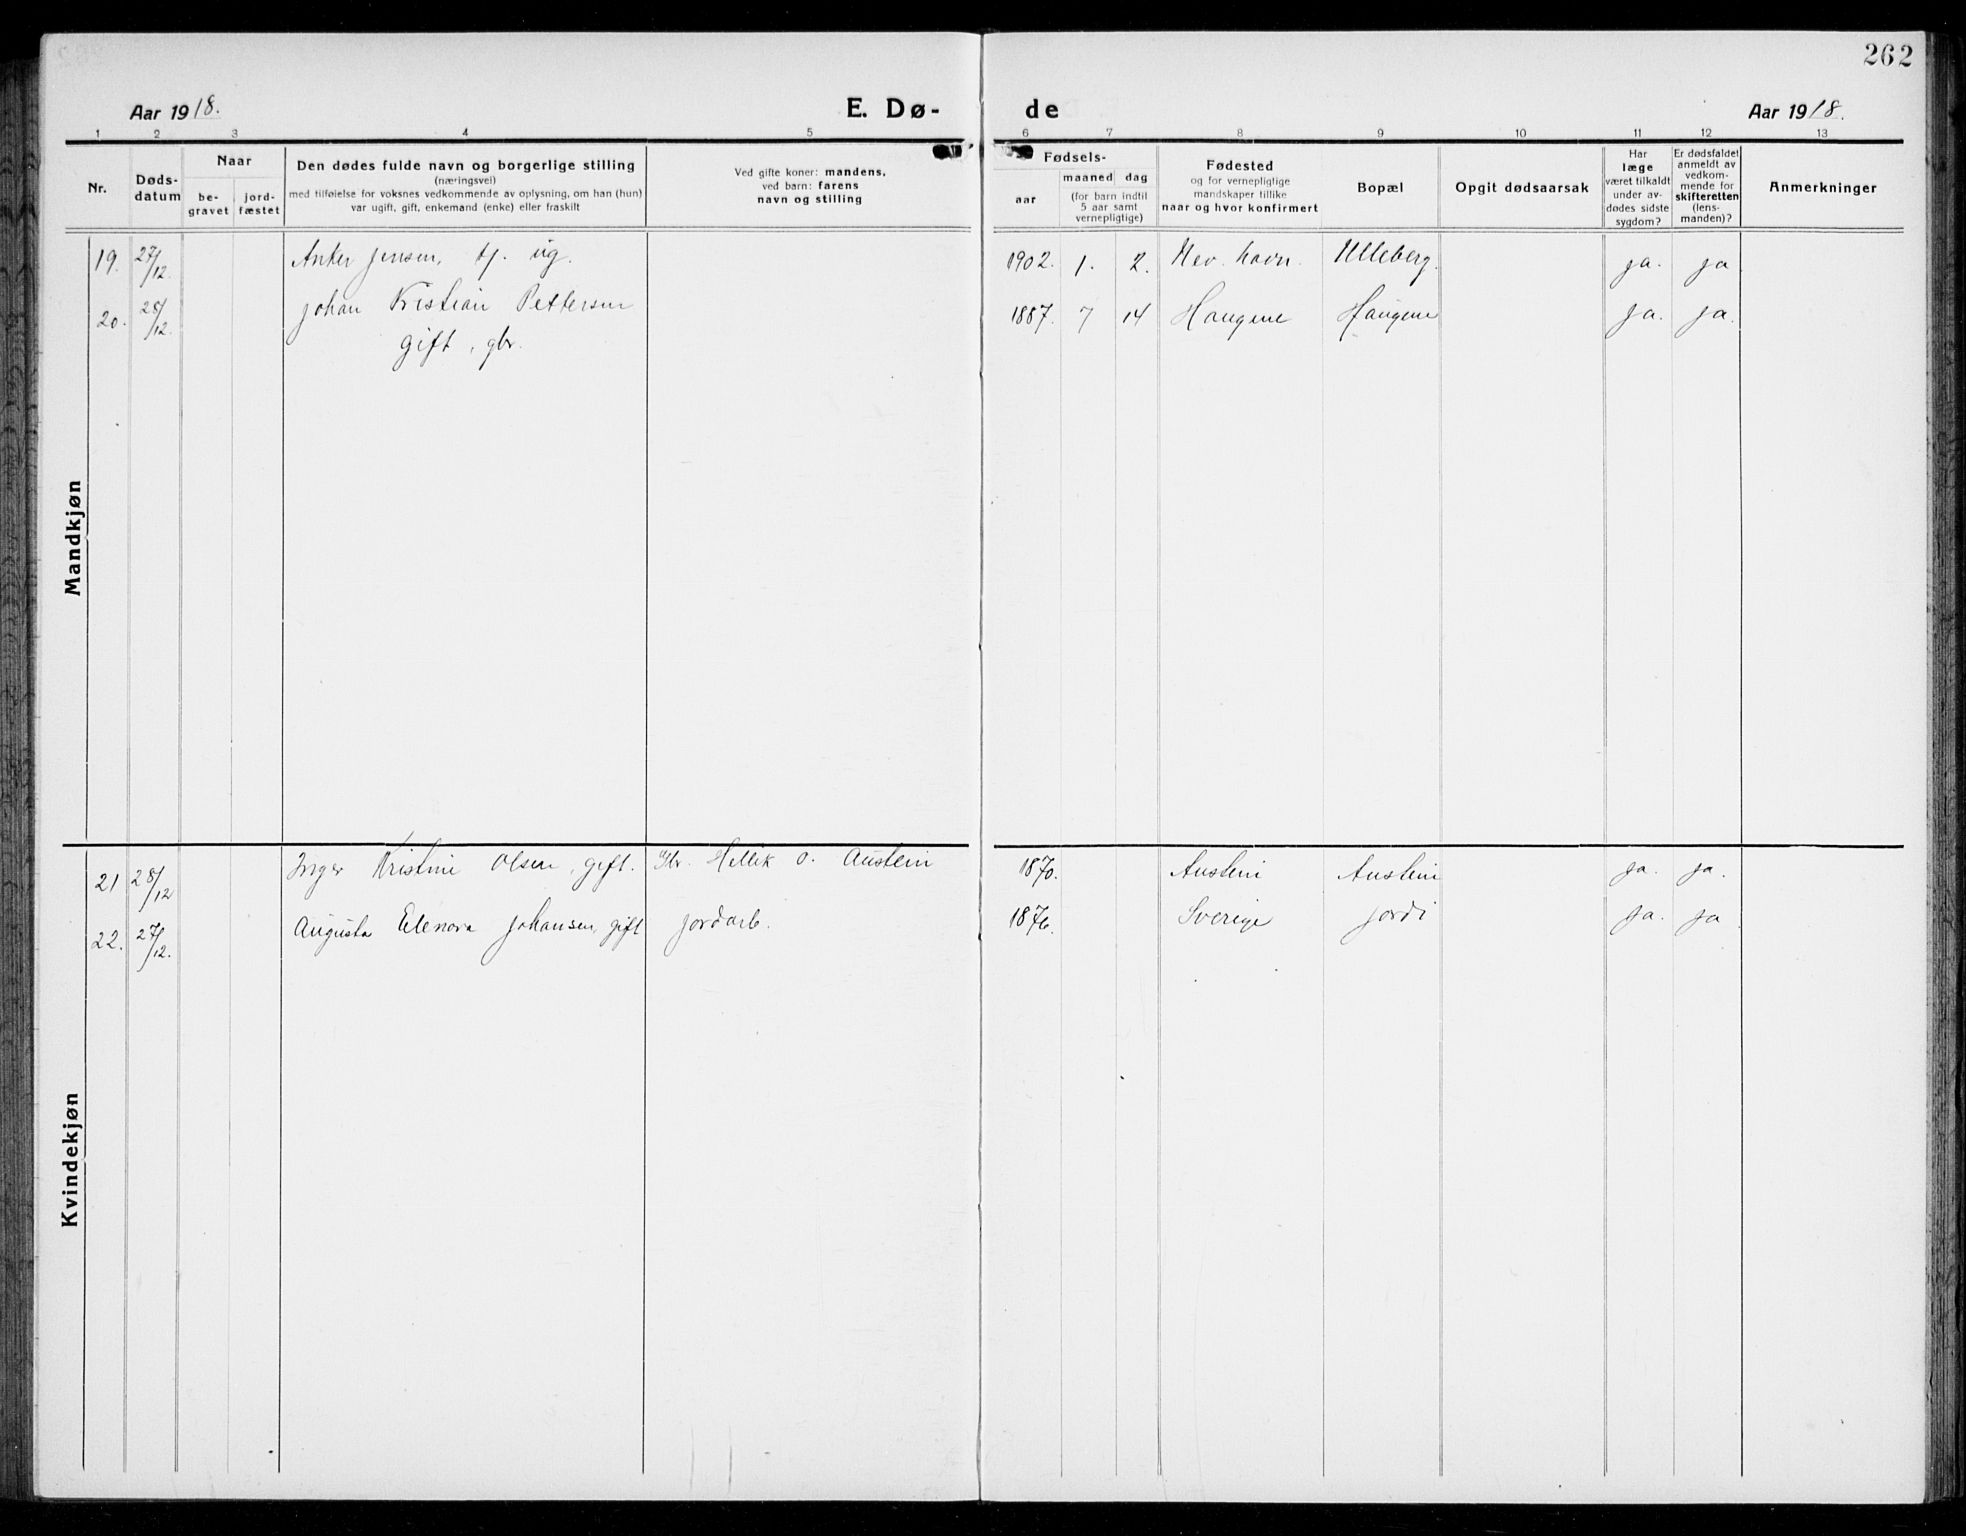 262
Aar 1918.
E. Dø-
de
Aar 1918.
1 2 3 4 5 6 7 8 9 10 11 12 13
Nr.
Døds-
datum
Naar
be-
gravet
jord-
fæstet
Den dødes fulde navn og borgerlige stilling
(næringsvei)
med tilføielse for voksnes vedkommende av oplysning, om han (hun)
var ugift, gift, enkemand (enke) eller fraskilt
Ved gifte koner: mandens,
ved barn: farens
navn og stilling
Fødsels-
aar
maaned dag
(for barn indtil
5 aar samt
vernepligtige)
Fødested
og for vernepligtige
mandskaper tillike
naar og hvor konfirmert
Bopæl
Opgit dødsaarsak
Har
læge
været tilkaldt
under av-
dødes sidste
sygdom?
Er dødsfaldet
anmeldt av
vedkom-
mende for
skifteretten
(lens-
manden)?
Anmerkninger
Mandkjøn
19. 27/12. Anker Jensen, tj. ug. 1902. 1. 2. Nev. havn. Ulleberg. ja. ja
20. 28/12. Johan Kristian Pettersen 1887. 7 14 Haugene Haugene ja. ja.
gift, gbr.
Kvindekjøn
21 28/12 Inger Kristine Olsen, gift. Gbr. Hellik O. Austein 1870. Austein Austein ja. ja.
22. 27/12. Augusta Elenora Johansen, gift jordarb. 1876. Sverige Jordi ja. ja